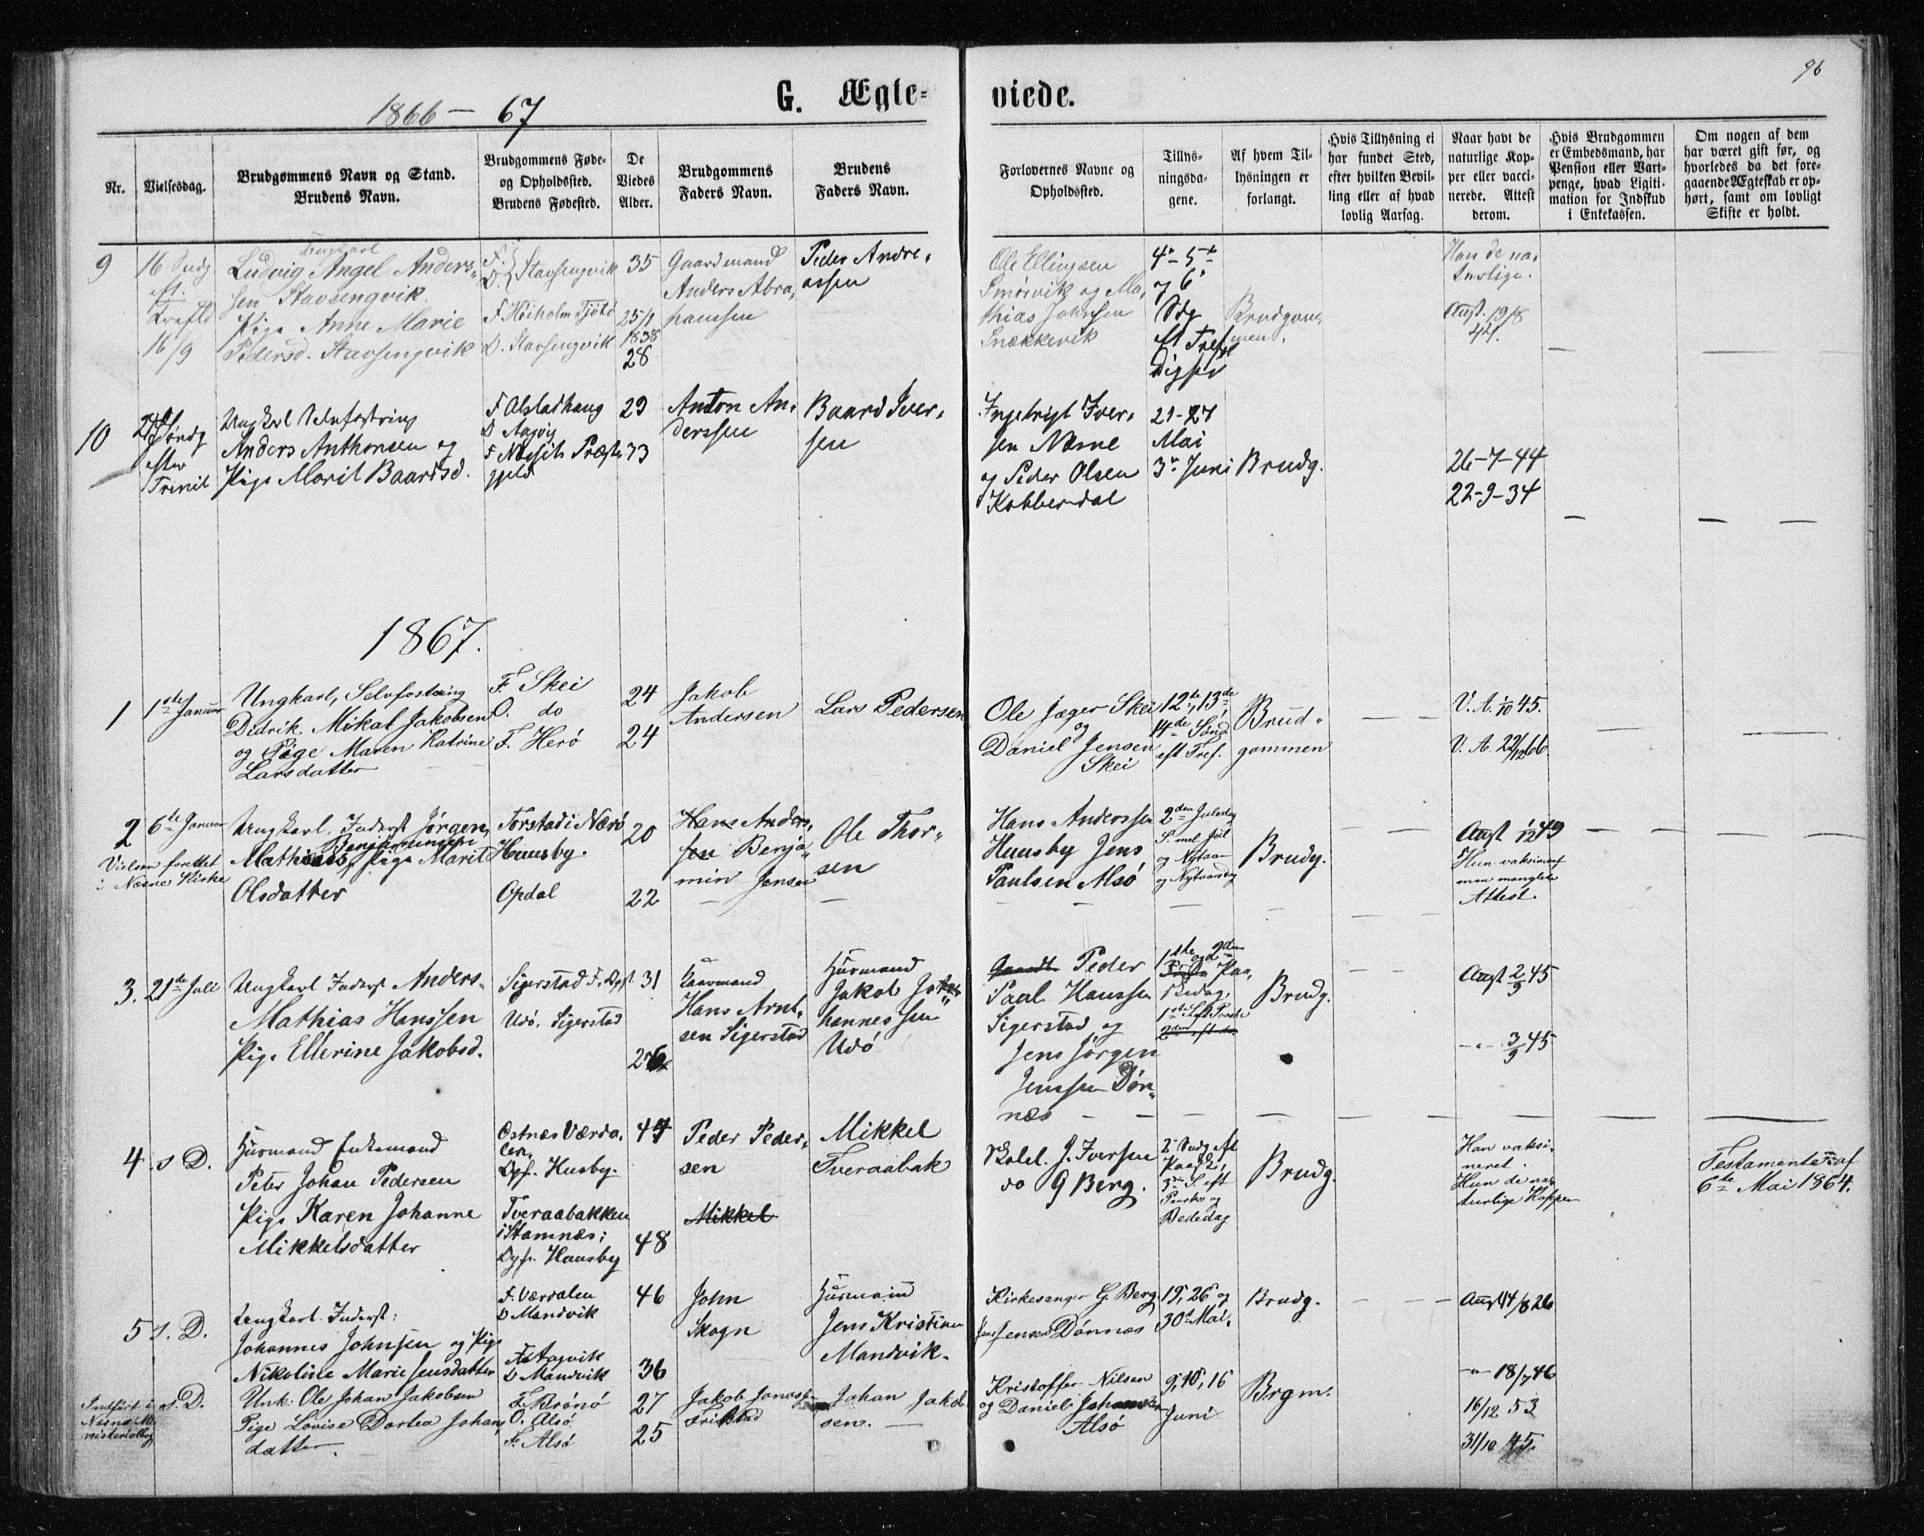 96
1866 – 67
G. Ægte-
viede.
Nr.
Vielsesdag.
Brudgommens Navn og Stand.
Brudens Navn.
Brudgommens Føde-
og Opholdssted.
Brudens Fødested.
De
Viedes
Alder.
Brudgommens
Faders Navn.
Brudens
Faders Navn.
Forlovernes Navne og
Opholdssted.
Tillys-
ningsda-
gene.
Af hvem Til-
lysningen er
forlangt.
Hvis Tillysning ei
har fundet Sted,
efter hvilken Bevil-
ling eller af hvad
lovlig Aarsag.
Naar havt de
naturlige Kop-
per eller vacci-
nerede. Attest
derom.
Hvis Brudgommen
er Embedsmand, har
Pension eller Vart-
penge, hvad Ligiti-
mation for Indskud
i Enkekassen.
Om nogen af dem
har været gift før, og
hvorledes da det fore-
gaaende Ægteskab er op-
hørt, samt om lovligt
Skifte er holdt.
9
16 Søndg
eft.
Trefld
16/9
Ungkarl
Ludvig Angel Anders-
sen Stavsengvik.
Pige Anne Marie
Pedersd. Stavsengvik
F. } Stavsengvik
O.
F. Høiholm Tjøtø
O. Stavsengvik
35
25/1
1838
28
Gaardmand
Anders Abra-
hamsen
Peder Andre-
assen
Ole Ellingsen
Smørvik og Ma-
thias Johnsen
Snækkevik
4de 5te
og 6
Sdg
eft Tref
digh
Brudgom-
men.
Han de na-
turlige.
Attst. 19/8
44.
10
Søndg
efter
Trinit
Ungkarl Selvfostring
Anders Anthonsen og
Pige Marit Baardsd.
F Alstadhaug
O Aagvig
F Nessets Præste-
gjeld
29
33
Anton An-
derssen
Baard Iver-
sen
Ingebrigt Iver-
sen Næsne
og Peder Olsen
Kobberdal
21-27
Mai
3de Juni
Brudg.
26-7-44
22-9-34
1867.
1
1ste Januar
Ungkarl, Selvfostring
Didrik Mikal Jakobsen
og Pige Maren Katrine
Larsdatter
F. Skei
O. do
F. Herø
24
24
Jakob
Andersen
Lars Pedersen
Ole Jæger Skei
og
Daniel Jensen
Skei
12te, 13de,
14de Sønd
eft Tref.
Brud-
gommen
V. A. 1/10 45.
V. A. 22/12 66
2
6te Januar
Vielsen forrettet
i Næsne Kirke
Ungkarl. Inderst Jørgen
Benjaminsen
Mathias, Pige Marit
Olsdatter
Forstad i Nærø
Huusby.
Opdal
20
22
Hans Anders-
sen Benja-
min Jensen
Ole Thor-
sen
Hans Anderssen
Huusby Jens
Paulsen Alsø
2den Juledag
S. mel Jul
og Nytaar
og Nytaarsdg
Brudg.
Attst 1/10 49
Hun vaksineret
men manglede
Attest.
3.
21de Juli
Ungkarl Inderst Anders-
Mathias Hanssen
Pige Ellerine Jakobsd.
Sigerstad F. Opst
Udø. Sigerstad
31
26
Gaardmand
Hans Arnt-
sen Sigerstad
Husmand
Jakob Jo-
hannessen
Udø
Gaardb. Peder
Paul Hanssen
Sigerstad og
Jens Jørgen
Jenssen Døn-
næs
1ste og 2den
Paa-
skedag,
1ste S. eft Paaske
2den eft do.
Brudg.
Attst 2/9 45
-"- 3/9 45
4
s. D.
Husmand Enkemand
Peter Johan Pedersen
Pige Karen Johanne
Mikkelsdatter
Østnes Værda-
len,
Opf. Husby.
Tveraabakken
i Stamnes;
Opf. Huusby
44
48
Peder Peder-
sen
Mikkel
Mikkel
Tveraabak
Skolel. J. Iversen
do G Berg.
2 Sndg eft
Paaske,
3de S. eft
Paaske og
Bededag
Brudg.
Han vaksi-
neret.
Hun de na-
turlige Kopper
Testamente af
6te Mai 1864.
5
s. D.
Ungkarl. Inderst:
Johannes Johnsen og Pige
Nikoline Marie Jensdatter
F. Værdalen
O Mandvik
F. Aagvik
O Mandvik
46
36
John
Skogn
Husmand
Jens Kristian
Mandvik.
Kirkesanger G. Berg
Jens Jensen Dønnes
19, 26 og
30te Mai.
Brudg.
Attst 14/8 26
-"- 18/7 46
Indført i
Næsne Mi-
nisterialbog
s. D.
Unk: Ole Johan Jakobsen
Pige Lovise Dortea Johan-
datter.
F. Brønø
O. Alsø
F. Alsø
27
25
Jakob Jonassen
Johan Jakob-
sen.
Kristoffer Nilsen
og Daniel Johansen
Alsø
9, 10, 16
Juni
Brgm.
16/12 53
31/10 45.